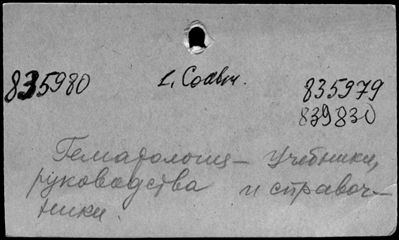 835980 1, Соавт. 835979
839830
Гематология – Учебники,
руководства и справоч-
ники.